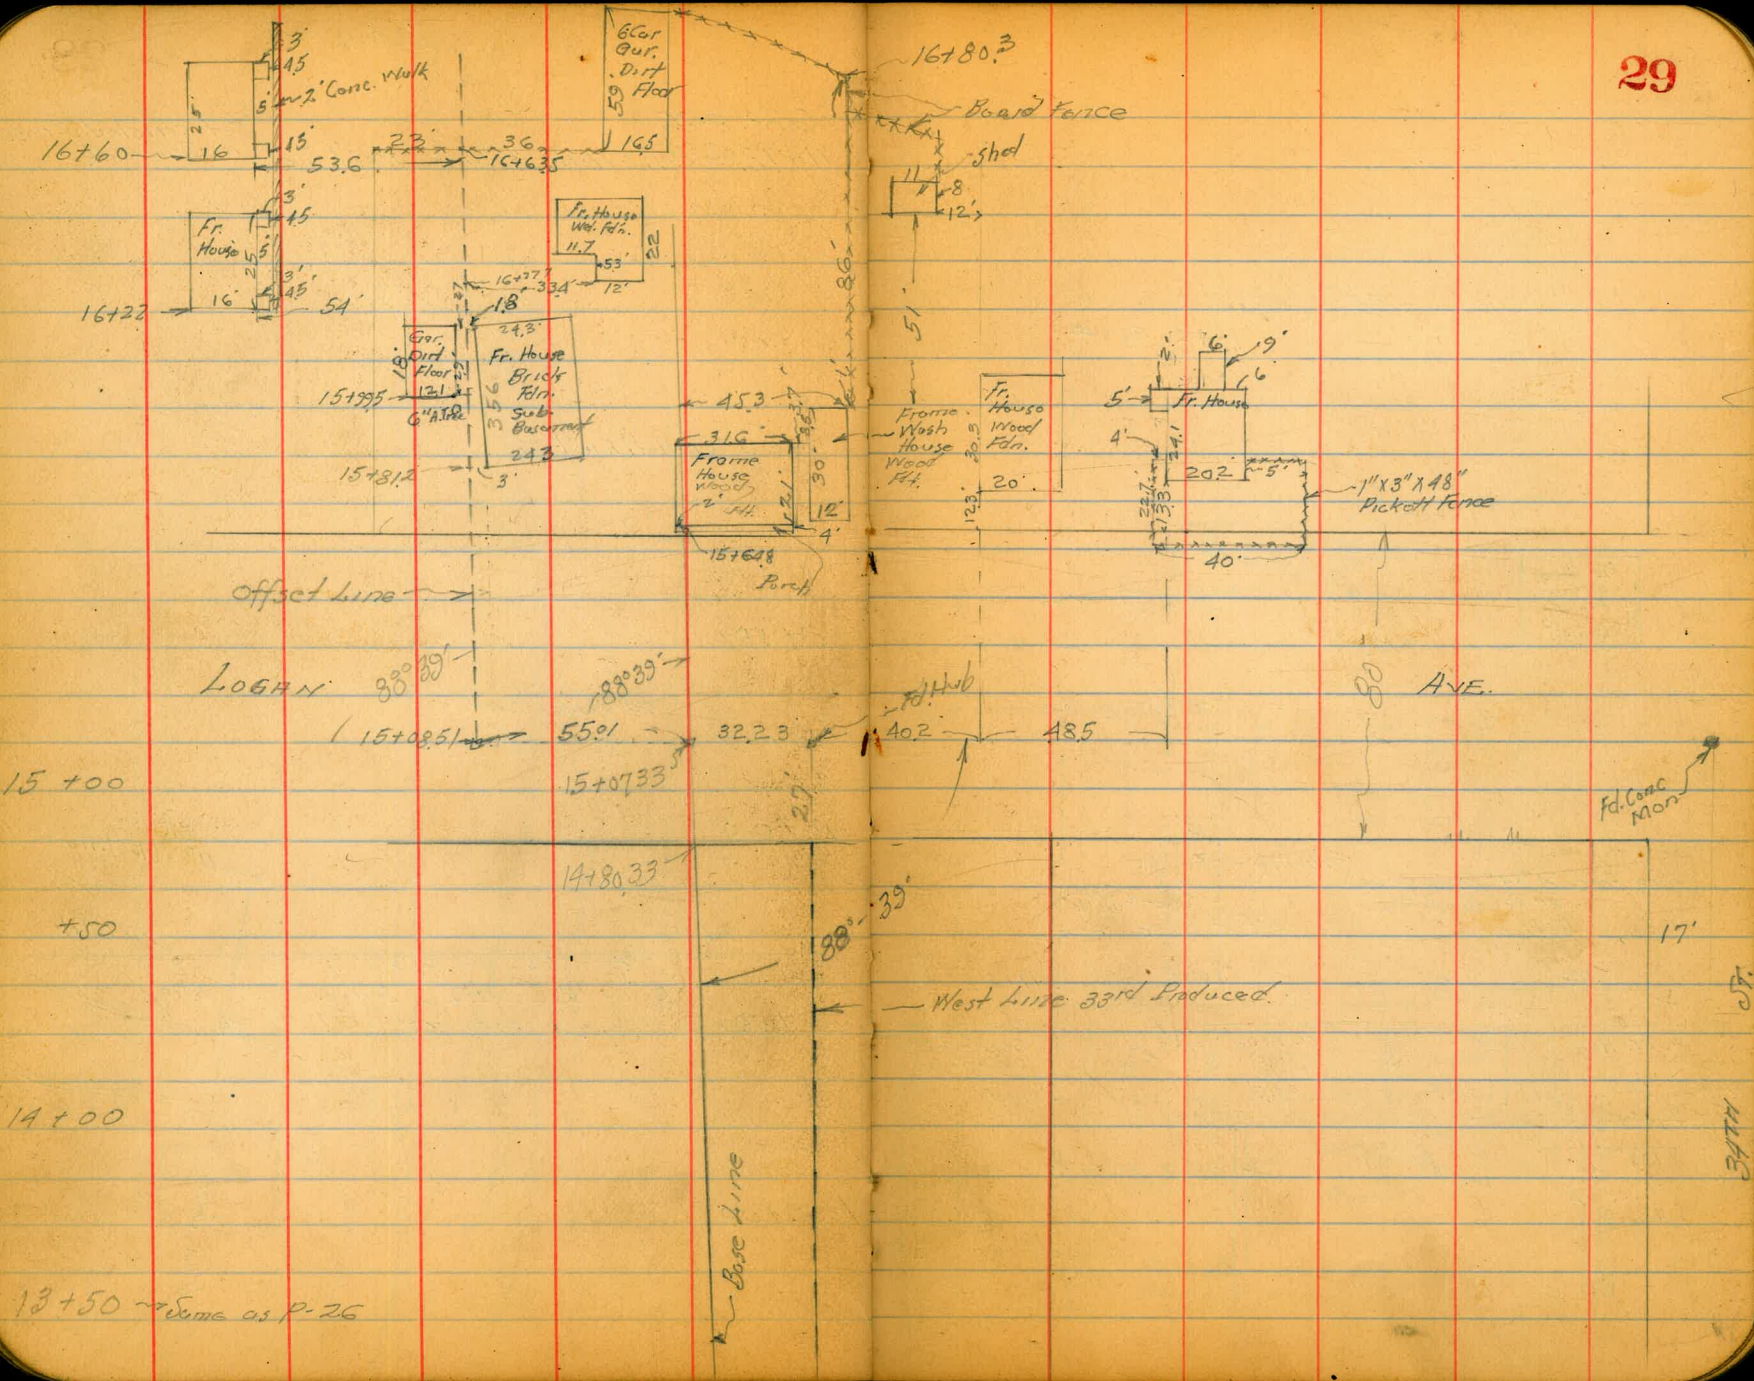 29
3'
4.5
2' Conc. Walk
5'
25'
4.5'
16+60
16
53.6
23'
36
16+63.5
6 Car
Gar.
Dirt
Floor
59
16.5
16+80.3
Board Fence
Shed
11
8
12'
3'
4.5
Fr.
House
5'
25
3'
4.5'
16'
16+22
54'
Fr. House
Wd. Fdn.
11.7
22
5.3'
12'
16+27.7
33.4'
27
1.8
86'
51'
Gar.
Dirt
Floor
18'
12.1
15+99.5
24.3'
Fr. House
Brick
Fdn.
Sub
Basement
35.6
24.3
15+81.2
3'
45.3
31.6'
3.7'
Frame
House
Wood
2'
Ft.
21'
30'
12'
4'
15+64.8
Porch
Frame
Wash
House
Wood
Ft.
Fr.
House
Wood
Fdn.
30.3
20'
12.3
2'
6'
9'
6
5'
Fr. House
4'
24.1
20.2
5'
22.7
13.3
40'
1"x3"x48"
Pickett Fence
Offset Line
LOGAN
88°39'
88°39'
Fd. Hub
80'
AVE.
15+08.51
55.01
32.23
40.2
48.5
15+00
15+07.33
27'
Fd. Conc.
Mon.
14+80.33
+50
88°-39'
17'
West Line 33rd Produced
ST.
34TH
14+00
Base Line
13+50 Same as P-26